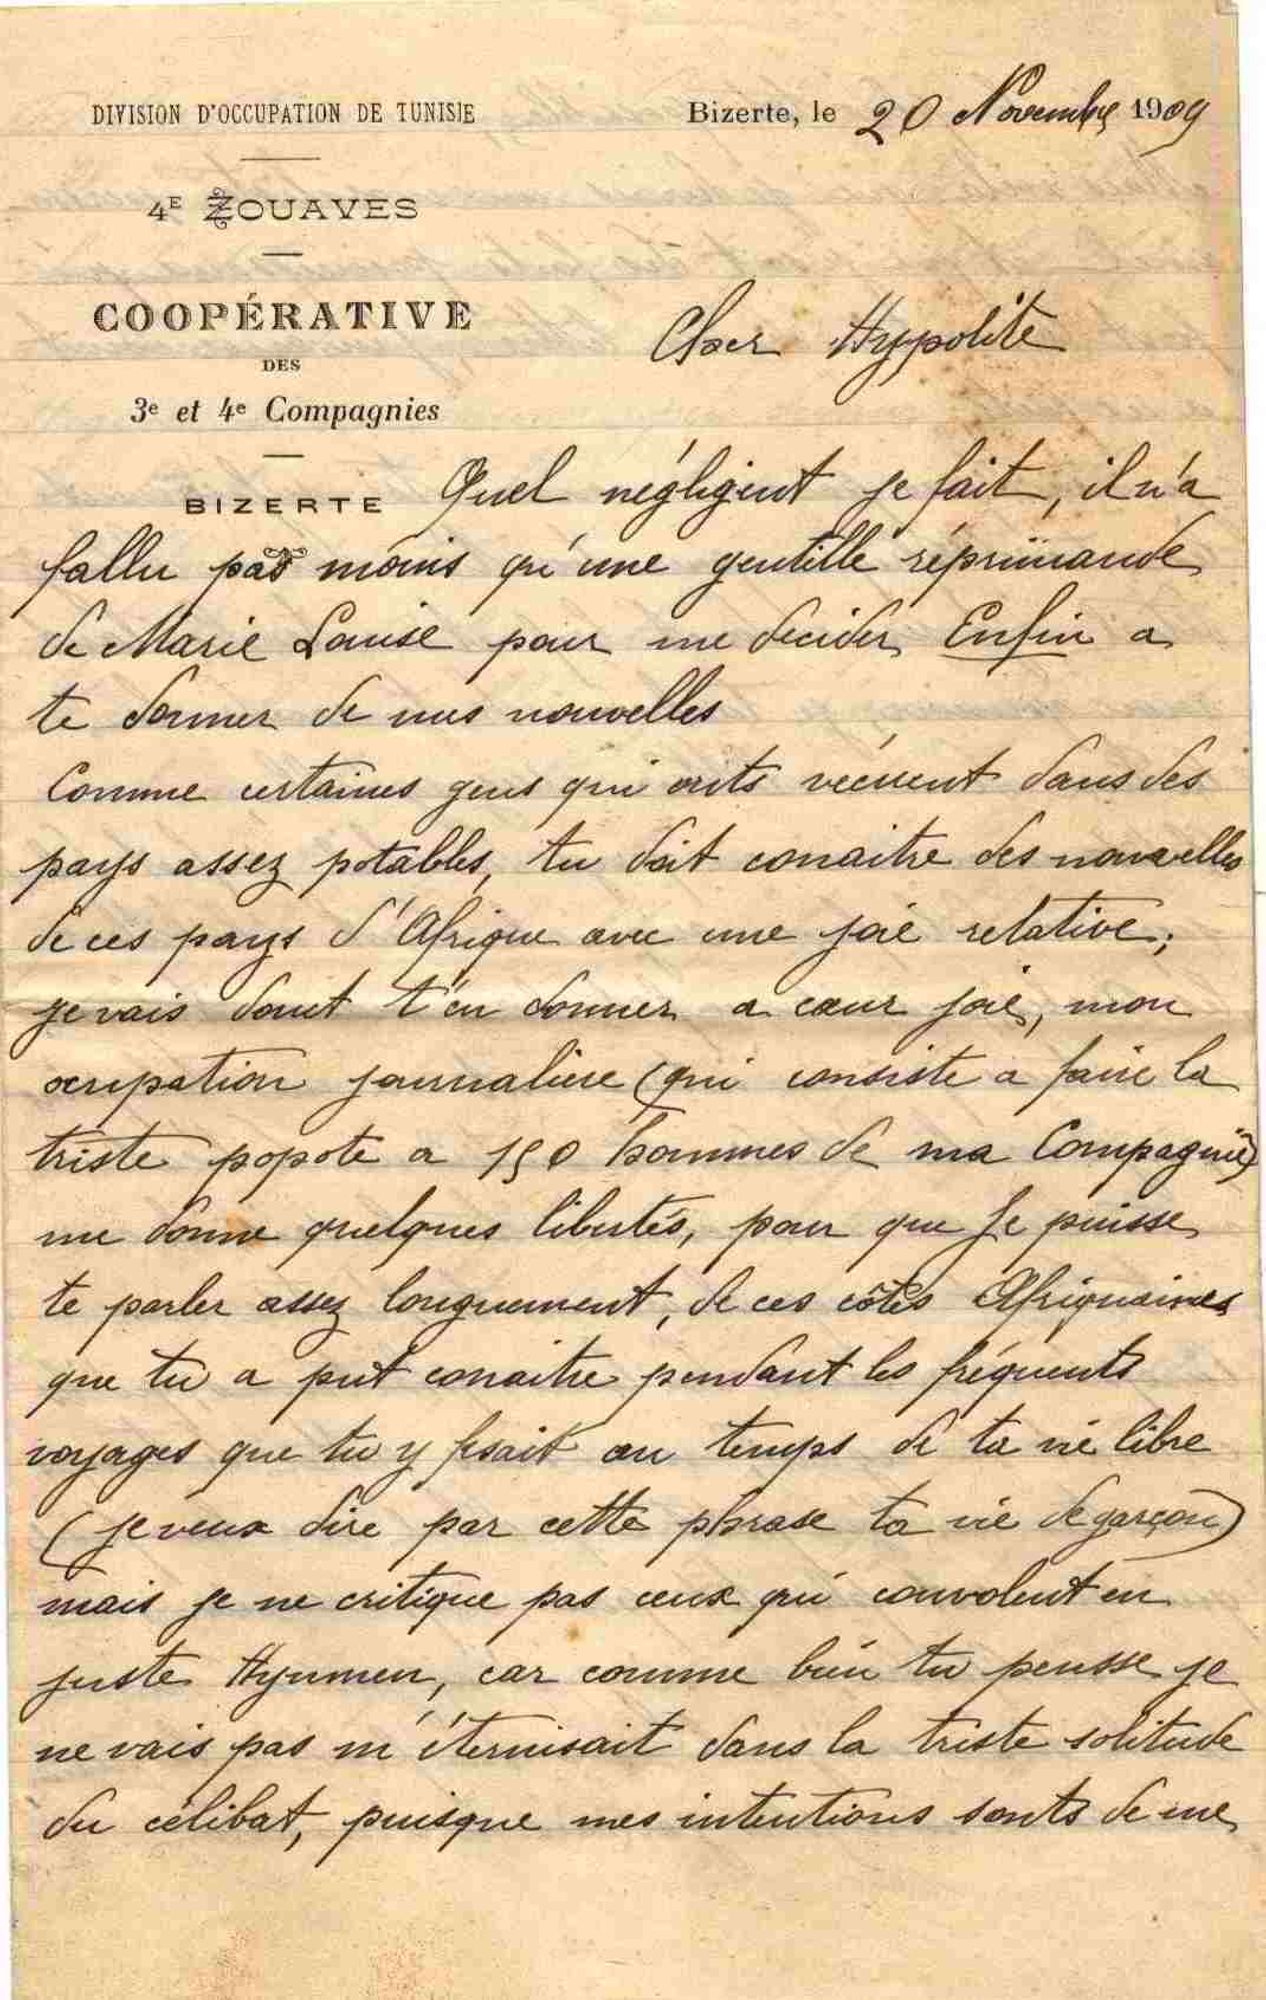 DIVISION D'OCCUPATION DE TUNISIE
Bizerte, le 20 Novembre 1909
4E ZOUAVES
COOPÉRATIVE
DES
3e et 4e Compagnies
BIZERTE
Cher Hypolite
Quel négligent je fait, il n'a
fallu pas moins qu'une gentille réprimande
de Marie Louise pour me decider Enfin a
te donner de mes nouvelles
Comme certaines gens qui onts vécurent dans des
pays assez potables, tu doit conaitre des nouvelles
de ces pays d'Afrique avec une joie relative;
je vais dont t'en donner a cœur joie, mon
ocupation journalière (qui consiste a faire la
triste popote a 150 hommes de ma Compagnie)
me donne quelques libertés, pour que je puisse
te parler assez longuement, de ces côtes Afriquaines
que tu a put conaitre pendant les fréquents
voyages que tu y fesait au temps de ta vie libre
(je veux dire par cette phrase ta vie de garçon)
mais je ne critique pas ceux qui convolent en
juste Hynmen, car comme bien tu pensse je
ne vais pas m'éternisait dans la triste solitude
du célibat, puisque mes intentions sonts de me